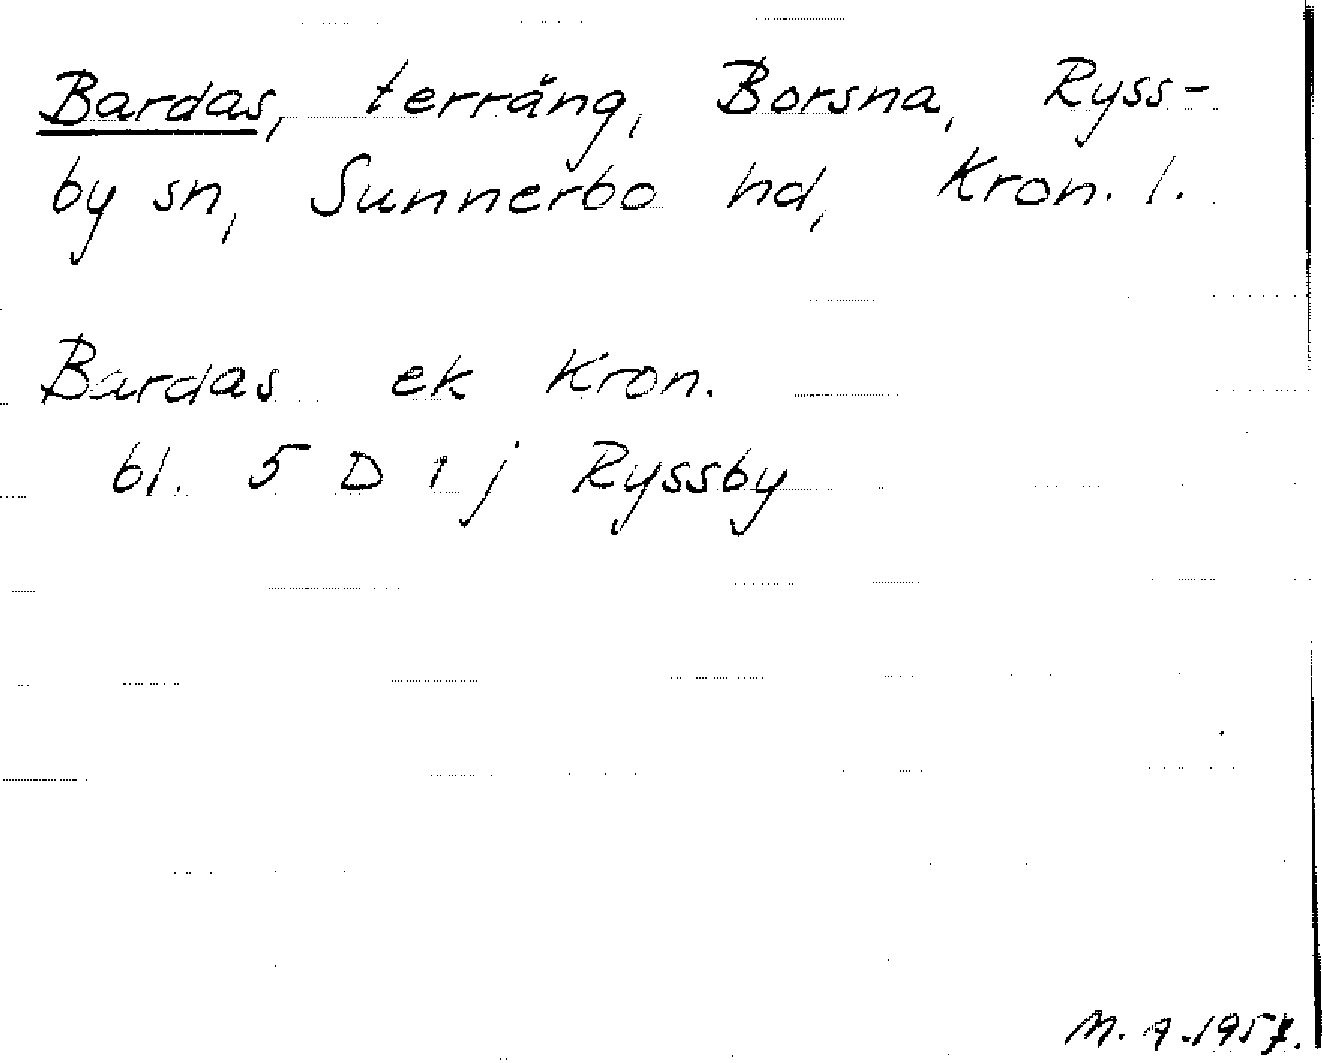 Bardas, terräng, Borsna, Ryss-
by sn, Sunnerbo hd, Kron. l.
Bardas ek Kron.
bl. 5 D 1 j Ryssby